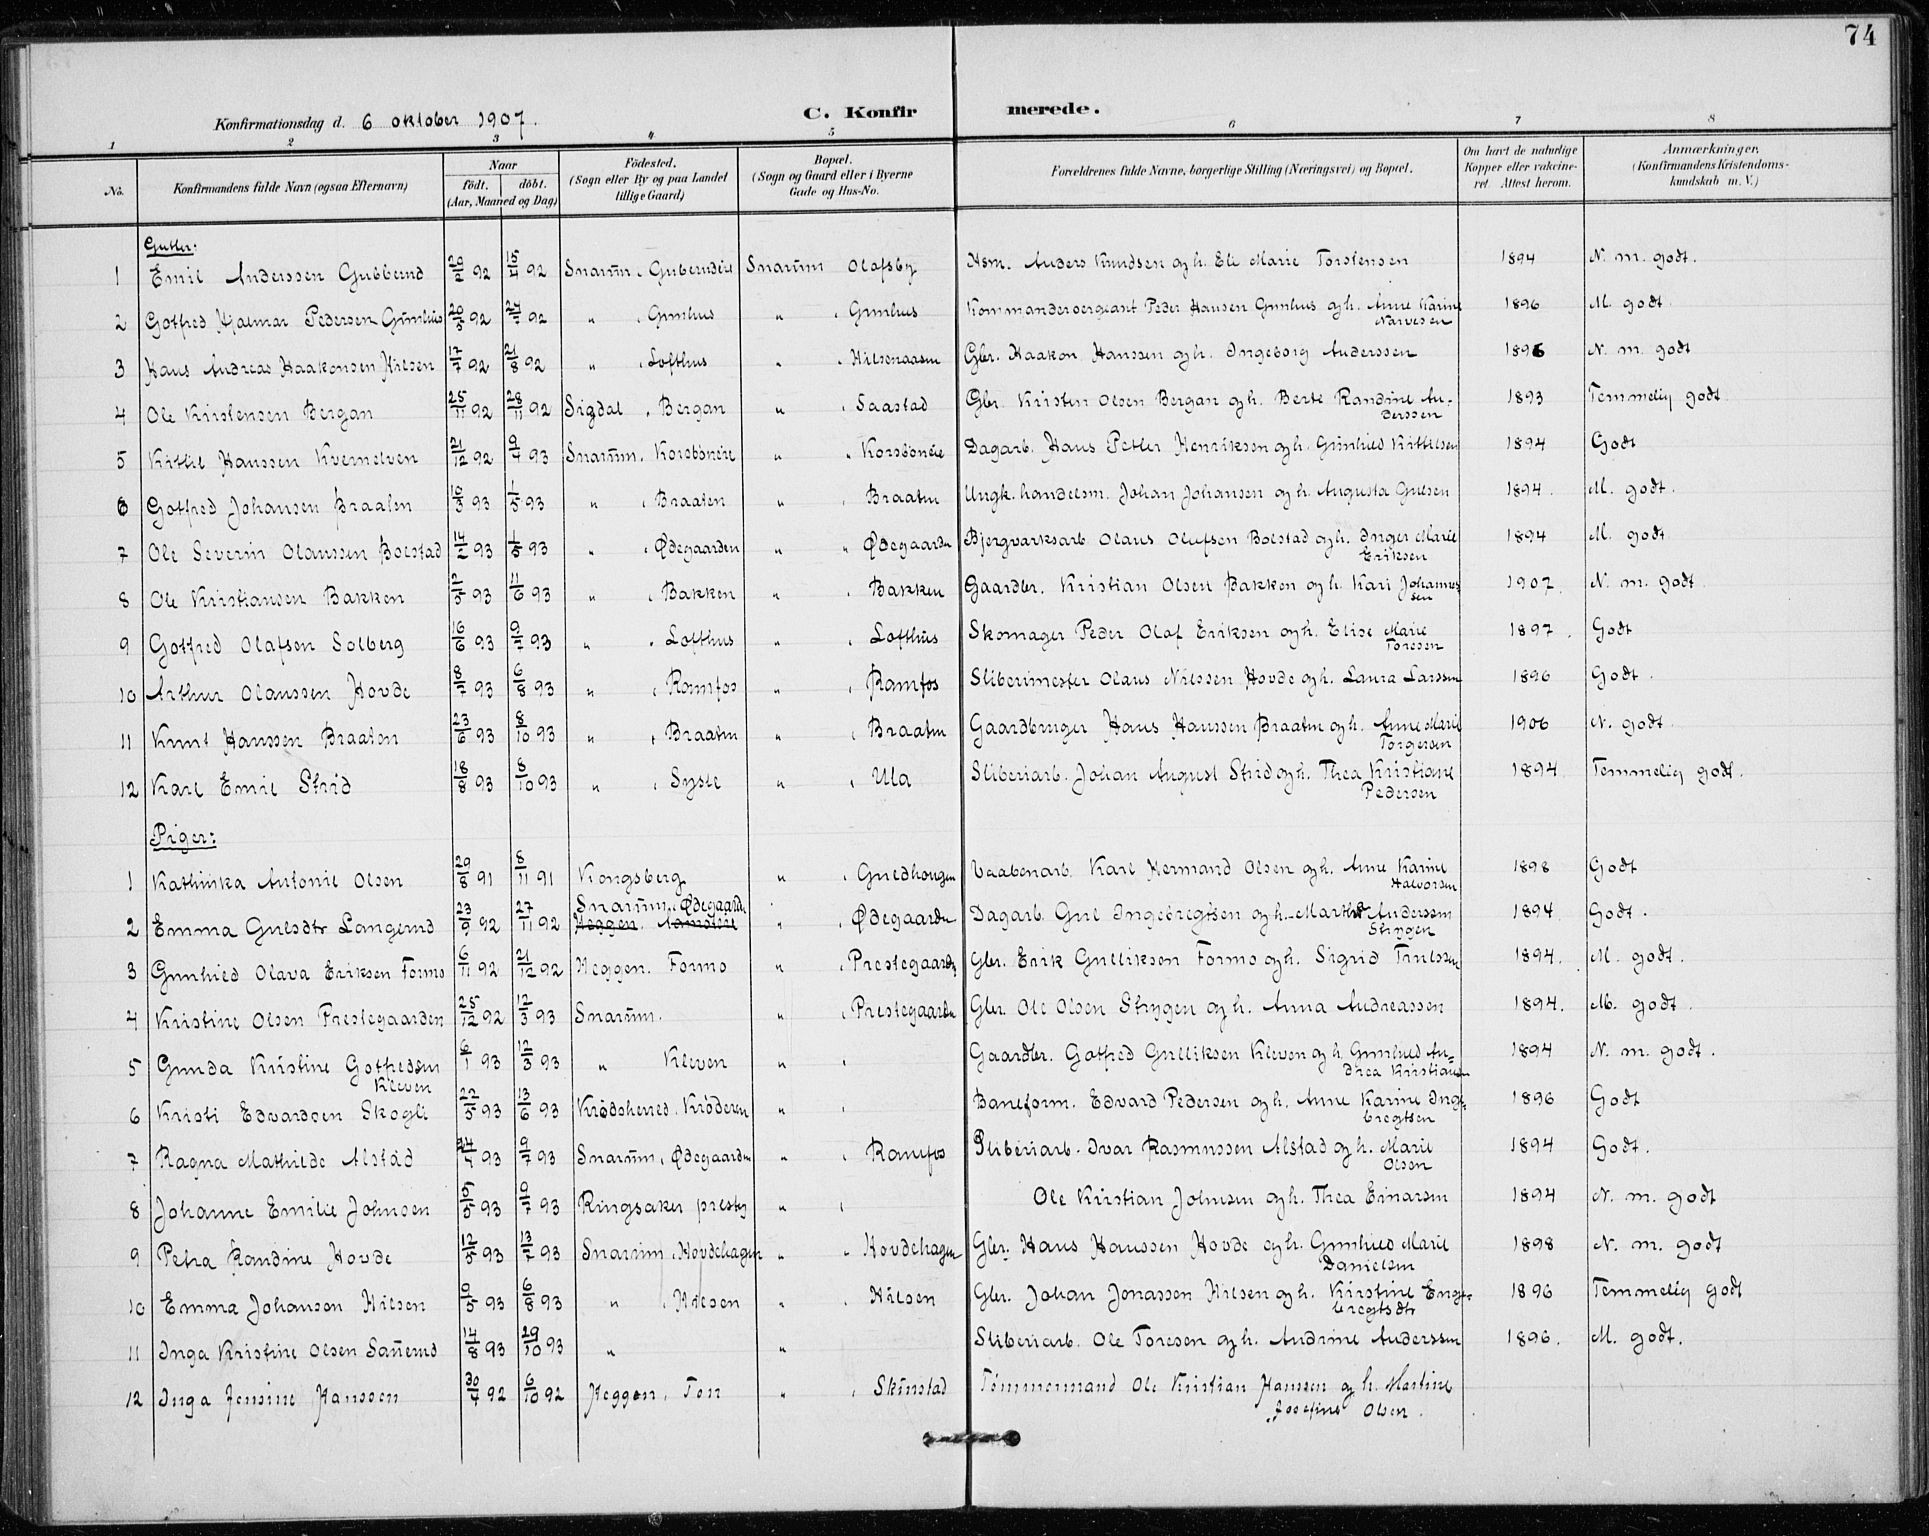 74
Konfirmationsdag d. 6 oktober 1907.
C. Konfirmerede.
1 2 3 4 5 6 7 8
No. Konfirmandens fulde Navn (ogsaa Efternavn) Naar födt. döbt. (Aar, Maaned og Dag) Födested. (Sogn eller By og paa Landet tillige Gaard) Bopæl. (Sogn og Gaard eller i Byerne Gade og Hus-No. Forældrenes fulde Navne, borgerlige Stilling (Næringsvei) og Bopæl. Om havt de naturlige Kopper eller vakcineret. Attest herom. Anmærkninger. (Konfirmandens Kristendomskundskab m. V.)
Gutter:
1 Emil Anderssen Gubberud 92 92 Snarum, Olafsby Hsm. Anders Knudsen og h. Eli Marie Torstensen 1894 N. m. godt.
2 Gotfred Hjalmar Pedersen Gunhus 20/3 92 92 " , Gunhus " , Gunhus Kommandersergeant Peder Hansen Gunhus og h. Anne Karine Narvesen 1896 M. godt.
3 Hans Andreas Haakonsen Hilsen 17/7 92 21/8 92 " , Lofthus " , Hilsenaasen Gbr. Haakon Hanssen og h. Ingeborg Anderssen 1896 N. m. godt
4 Ole Kristensen Bergan 25/11 92 28/11 92 Sigdal , Bergan " , Saastad Gbr. Kristen Olsen Bergan og h. Berte Randine Anderssen 1893 Temmelig godt.
5 Kittil Hanssen Kvernelven 21/12 92 9/4 93 Snarum, Korsböneie " " Korsböneie Dagarb. Hans Petter Henriksen og h. Gunhild Kittilsen 1894 Godt
6 Gotfred Johansen Braaten 10/3 93 1/5 93 " , Braaten " , Braaten Ungk. handelsm. Johan Johansen og h. Augusta Gulsen 1894. M. godt.
7 Ole Severin Olaussen Bolstad 93 1/5 93 " , Ødegaarden " " Ødegaarden Bjergværksarb. Olaus Olufsen Bolstad og h. Inger Marie Eriksen 1894 M. godt
8 Ole Kristiansen Bakken 2/5 93 11/6 93 " , Bakken " , Bakken Gaardbr. Kristian Olsen Bakken og h. Kari Johannessen 1907. N. m. godt
9 Gotfred Olafsen Solberg 16/6 93 9/7 93 " , Lofthus " , Lofthus Skomager Peder Olaf Eriksen og h. Elise Marie Toresen 1897. Godt
10 Arthur Olaussen Hovde 8/7 93 6/8 93 " , Ramfos " , Ramfos Sliberimester Olaus Nilssen Hovde og h. Laura Larssen 1896 Godt.
11 Knut Hanssen Braaten 23/6 93 8/10 93 " , Braaten " , Braaten Gaardbruger Hans Hanssen Braaten og h. Anne Marie Torgersen 1906 N. godt.
12 Karl Emil Strid 18/8 93 8/10 93 " , Sysle " , Ula Sliberiarb. Johan August Strid og h. Thea Kristiane Pedersen 1894 Temmelig godt.
Piger:
1 Kathinka Antonie Olsen 29/8 91 8/11 91 Kongsberg " , Guldhougen Vaabenarb. Karl Hermand Olsen og h. Anne Karine Halvorsen 1898 Godt
2 Emma Gulsdtr Langerud 23/9 92 27/11 92 Snarum, Ødegaarden Heggen, " , Ødegaarden Dagarb. Gul Ingebregtsen og h. Marthe Anderssen Strygen 1894 Godt.
3 Gunhild Olava Eriksen Formo 6/11 92 21/12 92 Heggen. Formo " , Prestegaarden Gbr. Erik Gulliksen Formo og h. Sigrid Trulssen 1894. M. godt.
4 Kristine Olsen Prestegaarden 25/12 92 12/3 93 Snarum. " , Prestegaarden Gbr. Ole Olsen Strygen og h. Anna Andreassen 1894. M. godt.
5 Gunda Kristine Gotfredsen Kleven 6/1 93 12/3 93 " Kleven " , Gaardbr. Gotfred Gulliksen Kleven og h. Gunhild Andrea Kristiansen 1894 N. m. godt.
6 Kristi Edvardsen Skogli 22/5 93 13/6 93 Krødsherred. Krøderen " , Baneform. Edvard Pedersen og h. Anne Karine Ingebregtsen 1896 Godt
7 Ragna Mathilde Alstad 93 9/7 93 Snarum, Ødegaarden " , Ramfos Sliberiarb. Ivar Rasmussen Alstad og h. Marie Olsen 1894 Godt.
8 Johanne Emilie Johnsen 5/5 93 9/7 93 Ringsaker presteg " , Ole Kristian Johnsen og h. Thea Einarsen 1894 N. m. godt
9 Petra Randine Hovde 12/5 93 13/7 93 Snarum, Hovdehagen " , Hovdehagen Gbr. Hans Hanssen Hovde og h. Gunhild Marie Danielsen 1898 N. m. godt
10 Emma Johansen Hilsen 9/5 93 6/8 93 " , Hilsen " , Hilsen Gbr. Johan Jonassen Hilsen og h. Kirstine Engebregtsdtr 1896 Temmelig godt
11 Inga Kristine Olsen 14/8 93 29/10 93 " " Sliberiarb. Ole Toresen og h. Andrine Anderssen 1896. M. godt.
12 Inga Jensine Hanssen 92 6/10 92 Heggen, Ton " , Skinstad Tømmermand Ole Kristian Hanssen og h. Martine Josefine Olsen.